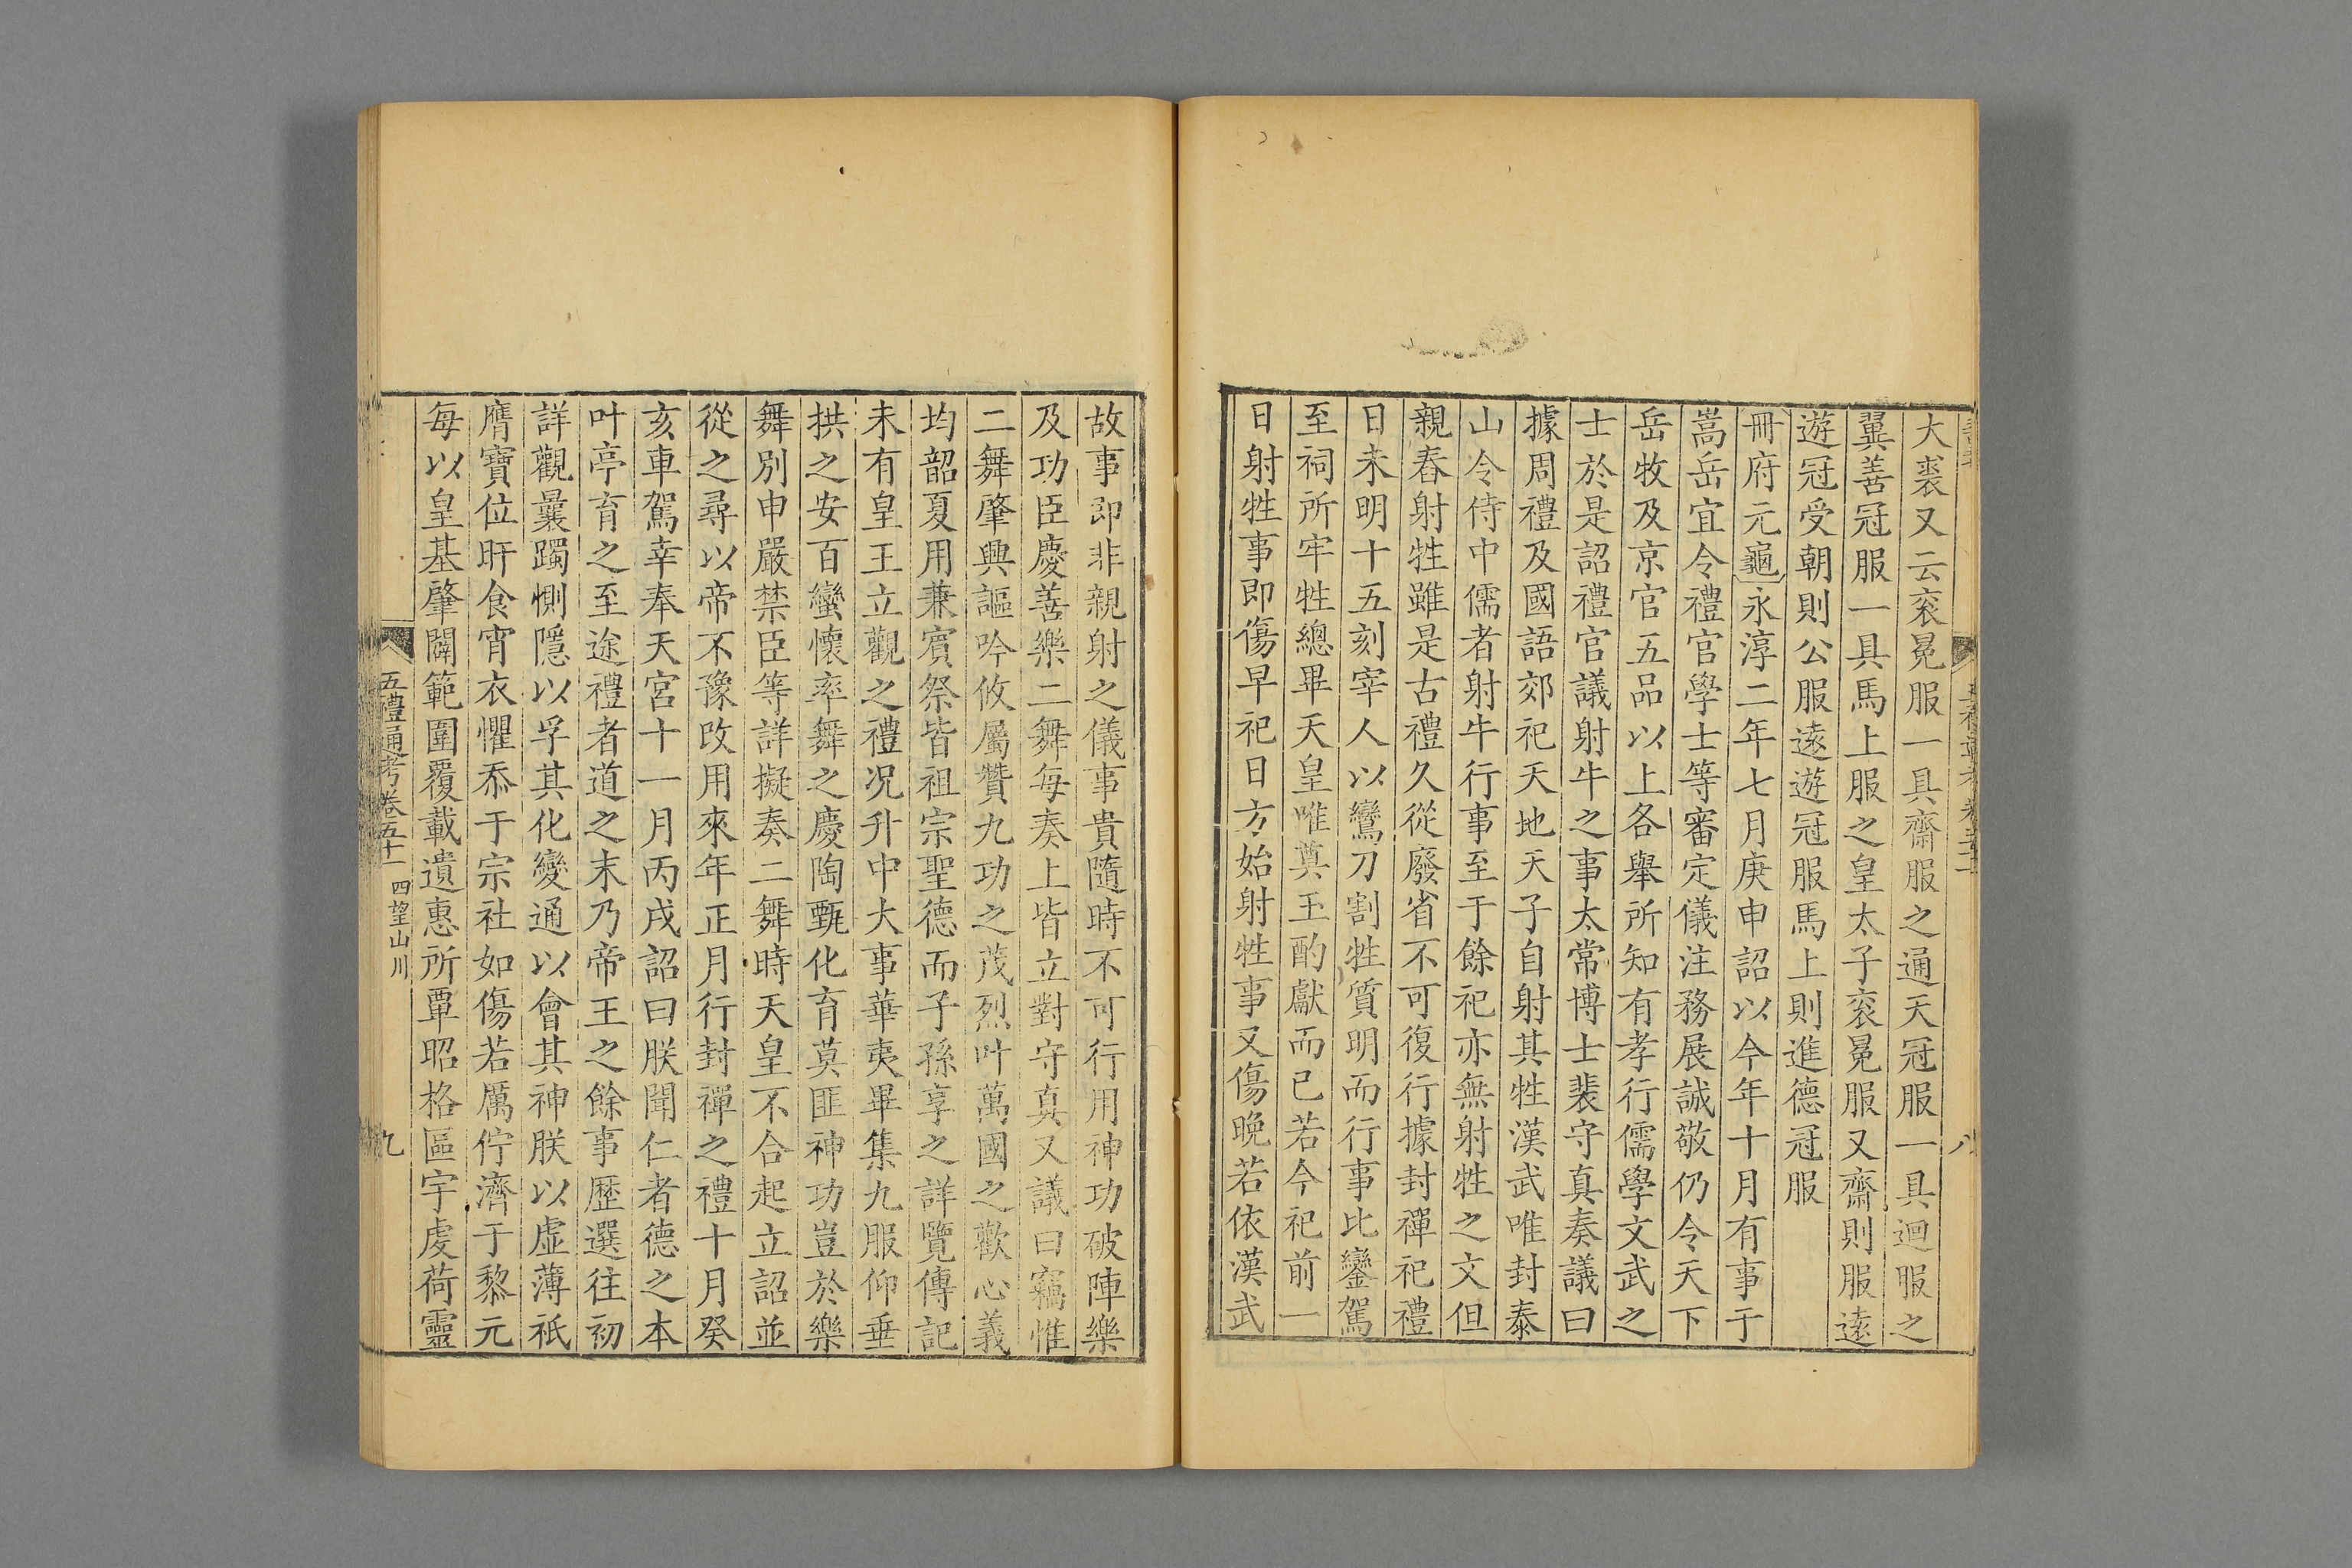 大裘又云衮冕服一具齋服之通天冠服一具迴服之
翼善冠服一具馬上服之皇太子衮冕服又齋則服逺
遊冠受朝則公服逺遊冠服馬上則進德冠服
冊府元龜永淳二年七月庚申詔以今年十月有事于
嵩岳宜令禮官學士等審定儀注務展誠敬仍令天下
岳牧及京官五品以上各舉所知有孝行儒學文武之
士於是詔禮官議射牛之事太常博士裴守真奏議曰
據周禮及國語郊祀天地天子自射其牲漢武唯封泰
山令侍中儒者射牛行事至于餘祀亦無射牲之文但
親舂射牲雖是古禮久從廢省不可復行據封禪祀禮
日未明十五刻宰人以鸞刀割牲質明而行事比鑾駕
至祠所牢牲總畢天皇唯奠玉酌獻而已若今祀前一
日射牲事即傷早祀日方始射牲事又傷晚若依漢武
故事即非親射之儀事貴隨時不可行用神功破陣樂
及功臣慶善樂二舞每奏上皆立對守真又議曰竊惟
二舞肇興謳吟攸屬贊九功之茂烈叶萬國之歡心義
均韶夏用兼賓祭皆祖宗聖德而子孫享之詳覽傳記
未有皇王立觀之禮况升中大事華夷畢集九服仰垂
拱之安百蠻懷率舞之慶陶甄化育莫匪神功豈於樂
舞別申嚴禁臣等詳擬奏二舞時天皇不合起立詔並
從之尋以帝不豫改用來年正月行封禪之禮十月癸
亥車駕幸奉天宮十一月丙戌詔曰朕聞仁者德之本
叶亭育之至途禮者道之末乃帝王之餘事歷選往初
詳觀曩躅惻隱以孚其化變通以會其神朕以虛薄祗
膺寶位旰食宵衣懼忝于宗社如傷若厲佇濟于黎元
每以皇基肇闢範圍覆載遺惠所覃昭格區宇虔荷靈
五禮通考卷五十一 四望山川 九